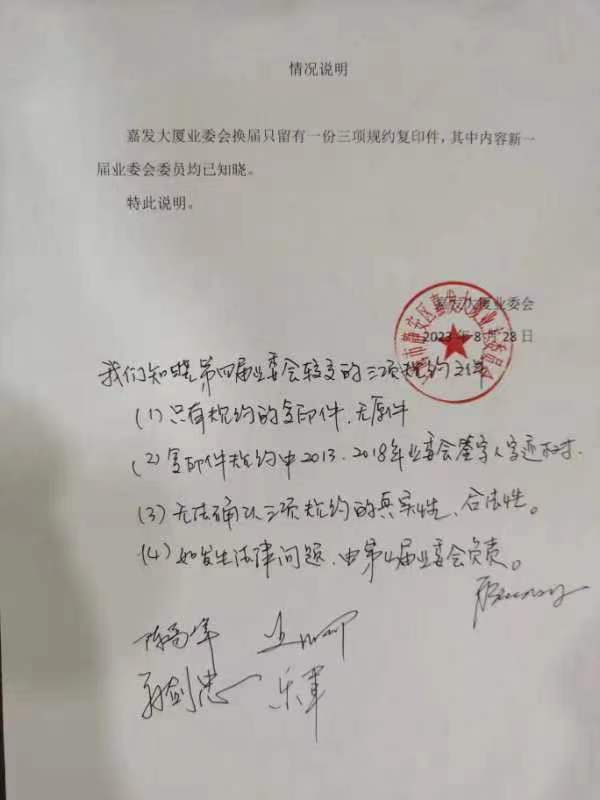 情况说明
嘉发大厦业委会换届只留有一份三项规约复印件，其中内容新一
届业委会委员均已知晓。
特此说明。
嘉发大厦业委会
2023年8月28日
我们知晓第四届业委会转交的三项规约文件
(1) 只有规约的复印件、无原件
(2) 复印件规约中2013、2018年业委会签字人字迹不对.
(3) 无法确认三项规约的真实性、合法性。
(4) 如发生法律问题、由第四届业委会负责。